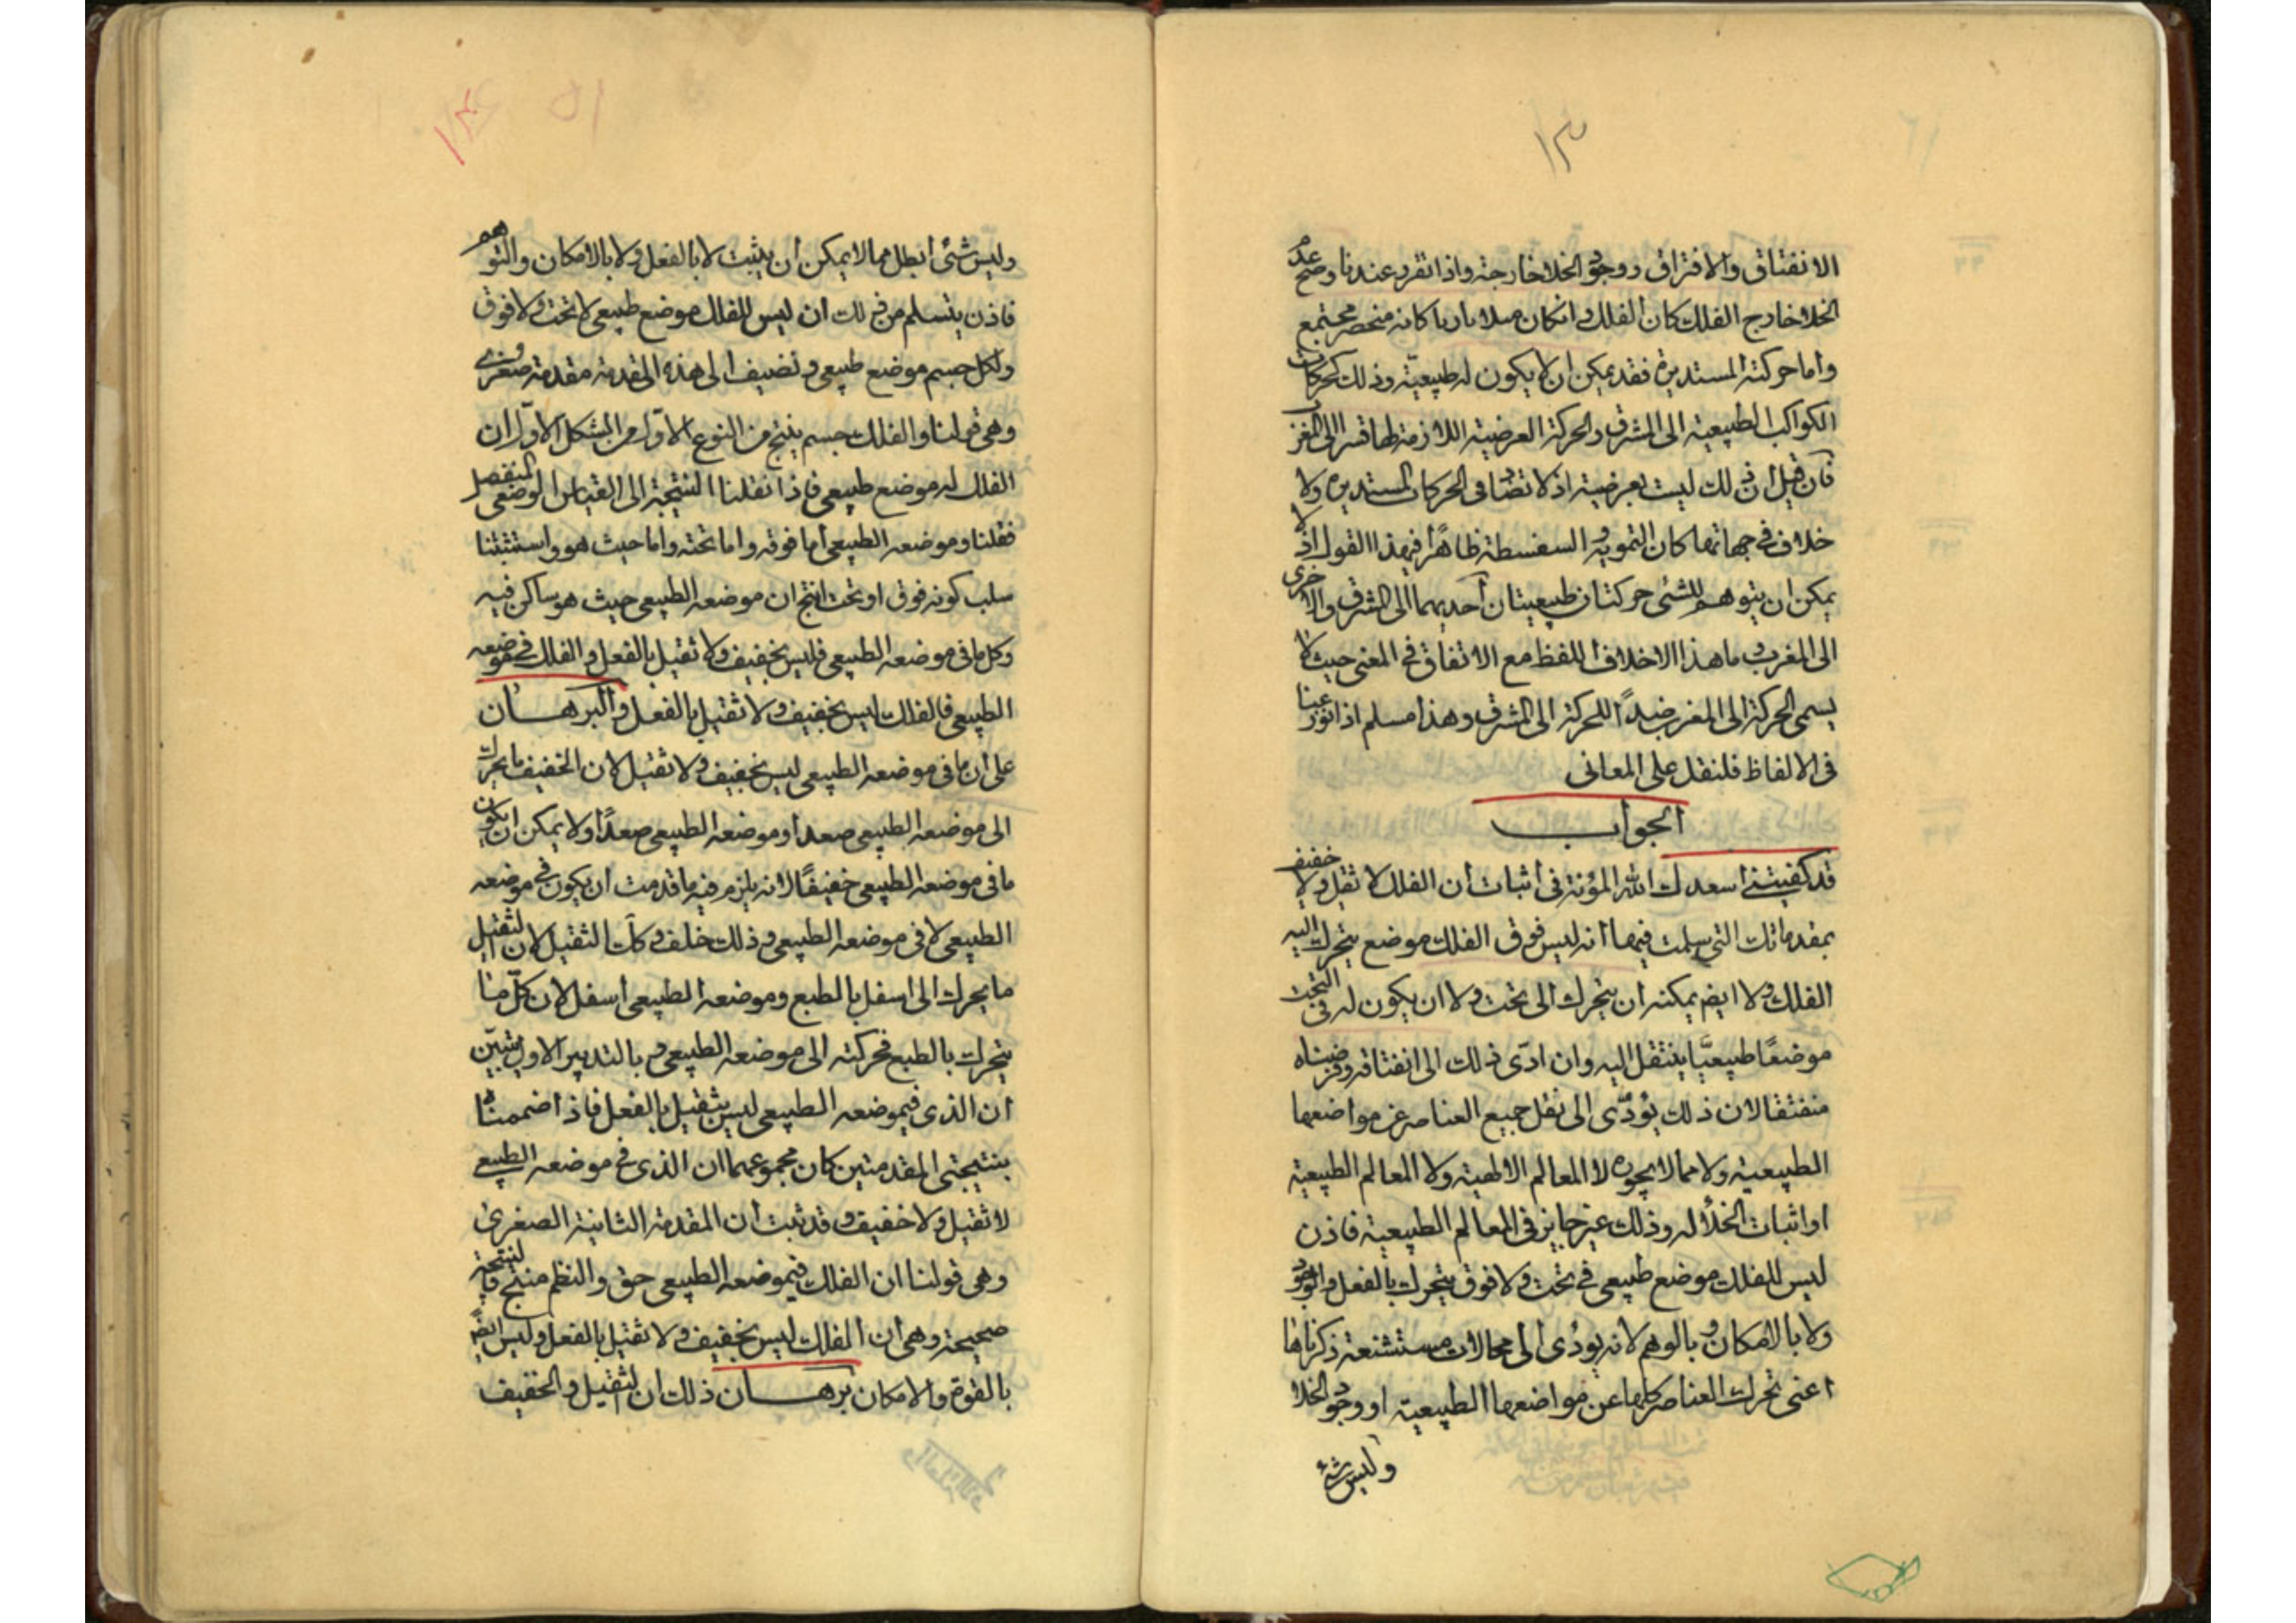 ١٣
الانفتاق والافتراق ووجود الخلا خارجته واذا تقرر عندنا وصح عدم
الخلا خارج الفلك كان الفلك وانكان ميلا ناريا كانه منحصر مجتمع
واما حركته المستديرة فقد يمكن ان لا يكون له طبيعيّة وذلك كحركات
الكواكب الطبيعية الى المشرق والحركة العرضية اللازمة لها قسرا الى الغرب
فان قيل ان ذلك ليست بعرضية اذ لا تضاد فى الحركات المستديره ولا
خلاف فى جهاتها كان التمويه والسفسطة ظاهرا فيهذا القول اذ لا
يمكن ان يتوهم للشئى حركتان طبيعيتان أحديهما الى المشرق والاخرى
الى المغرب وما هذا الاخلاف اللفظ مع الاتفاق فى المعنى حيث لا
يسمى الحركة الى المغرب ضدًا للحركة الى المشرق وهذا مسلم اذا نوزعنا
فى الالفاظ فلنقل على المعانى
الجواب
قد كفيتنى اسعدك الله المؤنة فى اثبات أن الفلك لا ثقيل ولا خفيف
بمقدماتك التى سلمت فيها أنه ليس فوق الفلك موضع يتحرك اليه
الفلك ولا ايضم يمكنه ان يتحرك الى تحت ولا ان يكون له فى التحت
موضعًا طبيعيًّا ينتقل اليه وان ادّى ذلك الى انفتاقه وفرضناه
منفتقا لان ذلك يؤدّى الى نقل جميع العناصر عن مواضعها
الطبيعية ولا مما لا يجوزه لا المعالم الالهية ولا المعالم الطبيعية
او اثبات الخلأ له وذلك غير جايز فى المعالم الطبيعية فاذن
ليس للفلك موضع طبيعى فى تحت ولا فوق يتحرك بالفعل والوجود
ولا بالامكان وبالوهم لانه يؤدى الى محالات مستشنعة ذكرناها
اعنى تحرك العناصر كلها عن مواضعها الطبيعية او وجود الخلا
وليس شئ
وليس شئى أبطل مما لا يمكن أن يثبت لا بالفعل ولا بالامكان والتوهم
فاذن يتسلم من ذلك ان ليس للفلك موضع طبيعى لا تحت ولا فوق
ولكل جسم موضع طبيعى ونضيف الى هذه المقدمة مقدمة صغرى
وهى قولنا والفلك جسم ينتج من النوع الاوّل من الشكل الاوّل ان
الفلك له موضع طبيعى فاذا نقلنا النتيجة الى القياس الوضعى المنفصل
فقلنا وموضعه الطبيعى أما فوقه واما تحته واما حيث هو واستثنينا
سلب كونه فوق او تحت انتج ان موضعه الطبيعى حيث هو ساكن فيه
وكل ما فى موضعه الطبيعى فليس بخفيف ولا ثقيل بالفعل والفلك فى موضعه
الطبيعى فالفلك ليس بخفيف ولا ثقيل بالفعل والبرهان
على ان ما فى موضعه الطبيعى ليس بخفيف ولا ثقيل لان الخفيف ما يحرك
الى موضعه الطبيعى صعداً وموضعه الطبيعى صعدًا ولا يمكن ان يكون
ما فى موضعه الطبيعى خفيفًا لانه يلزم فيه ما قدمت ان يكون فى موضعه
الطبيعى لا فى موضعه الطبيعى وذلك خلف وكذلك الثقيل لان الثقيل
ما يحرك الى اسفل بالطبع وموضعه الطبيعى أسفل لان كلّ ما
يتحرك بالطبع فحركته الى موضعه الطبيعى وبالتدبير الاول يتبيّن
ان الذى فيموضعه الطبيعى ليس بثقيل بالفعل فاذا اضممنا
بنتيجتى المقدمتين كان مجموعهما ان الذى فى موضعه الطبيعى
لا ثقيل ولا خفيف وقد ثبت أن المقدمة الثانية الصغرى
وهى قولنا ان الفلك فيموضعه الطبيعى حق والنظم منتج فالنتيجة
صحيحة وهى ان الفلك ليس بخفيف ولا ثقيل بالفعل وليس ايضم
بالقوة والامكان برهان ذلك ان الثقيل والخفيف